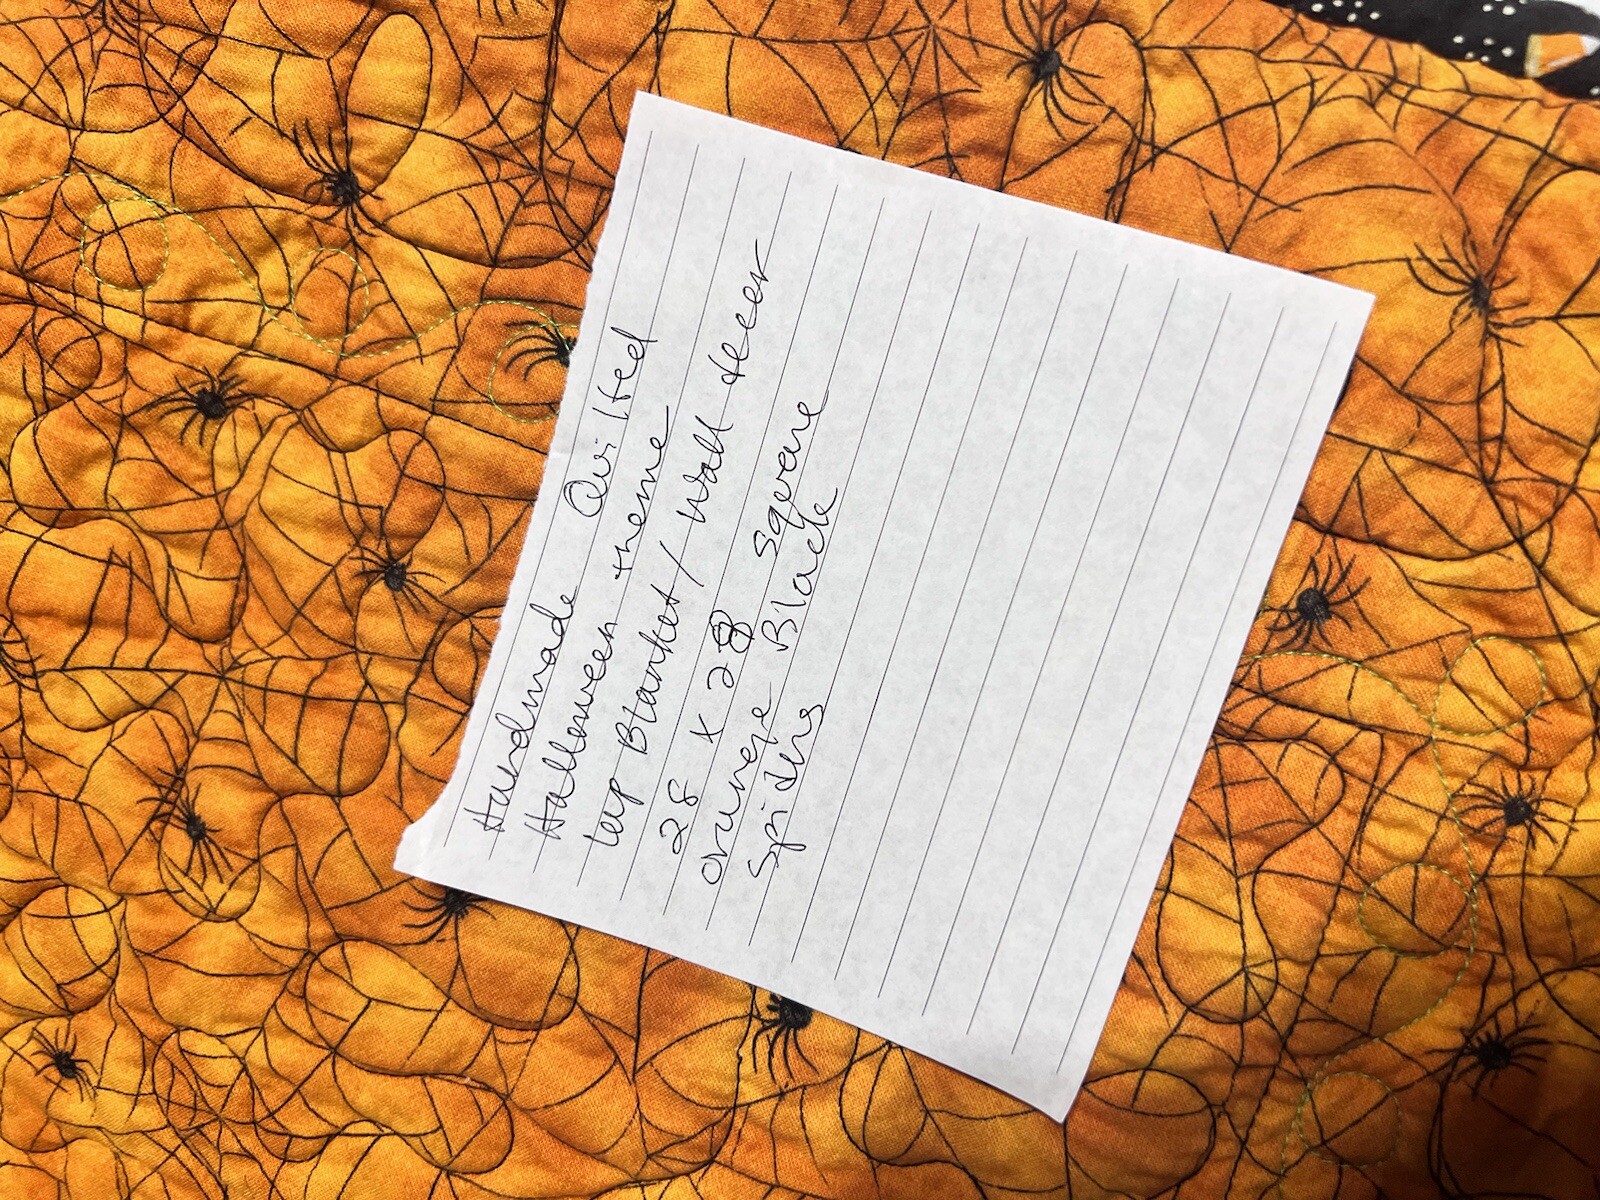 Handmade Quilted
Halloween theme
Lap Blanket/ Wall
28 x 28 square
orange Black
Spiders